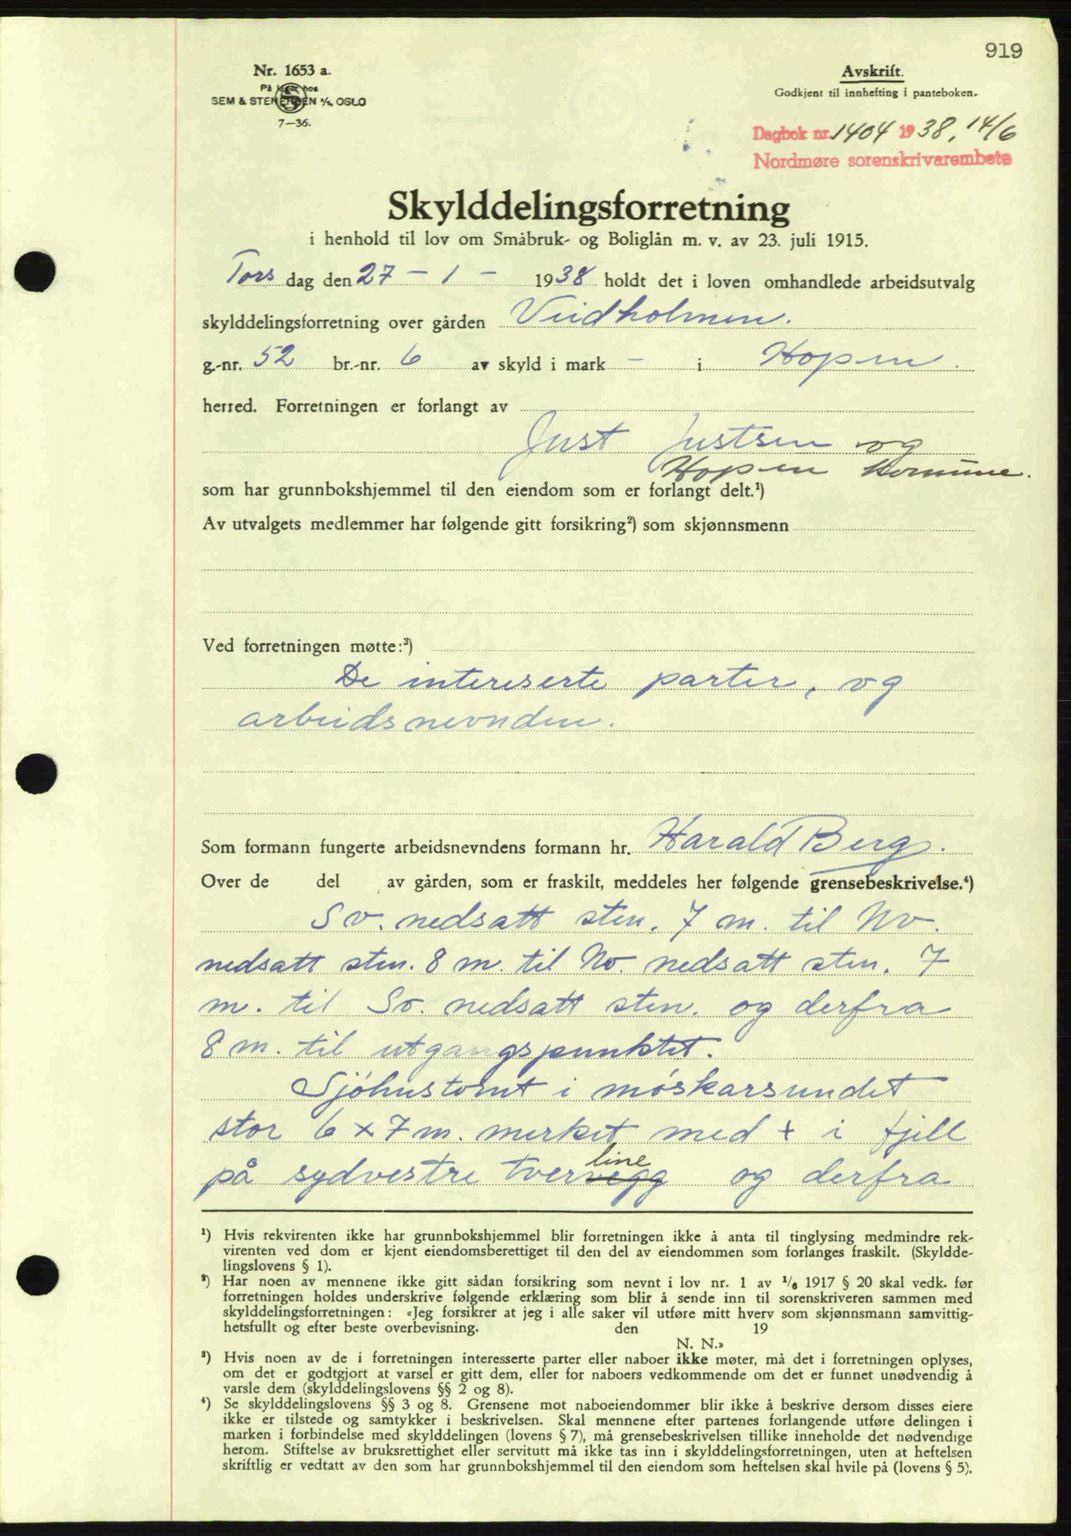 919
Nr. 1653 a.
På lager hos
SEM & STENERSEN A/S, OSLO
7-36.
Avskrift.
Godkjent til innhefting i panteboken.
Dagbok nr. 1404 1938, 14/6
Nordmøre sorenskrivarembete
Skylddelingsforretning
i henhold til lov om Småbruk- og Boliglån m. v. av 23. juli 1915.
Tors dag den 27 - 1 - 1938 holdt det i loven omhandlede arbeidsutvalg
skylddelingsforretning over gården Veidholmen.
g.-nr. 52 br.-nr. 6 av skyld i mark - i Hopen.
herred. Forretningen er forlangt av
Just Justsen og
Hopen Komune.
som har grunnbokshjemmel til den eiendom som er forlangt delt.¹)
Av utvalgets medlemmer har følgende gitt forsikring²) som skjønnsmenn
Ved forretningen møtte:³)
De intereserte parter, og
arbeidsnevnden.
Som formann fungerte arbeidsnevndens formann hr. Harald Berg.
Over de del av gården, som er fraskilt, meddeles her følgende grensebeskrivelse.⁴)
Sv. nedsatt sten. 7 m. til Nv.
nedsatt sten. 8 m. til No. nedsatt sten. 7
m. til So. nedsatt sten. og derfra
8 m. til utgangspunktet.
Sjóhustomt i móskarsundet
stor 6 x 7 m. merket med + i fjell
line
på sydvestre tvervegg og derfra
¹) Hvis rekvirenten ikke har grunnbokshjemmel blir forretningen ikke å anta til tinglysing medmindre rek-
virenten ved dom er kjent eiendomsberettiget til den del av eiendommen som forlanges fraskilt. (Skyldde-
lingslovens § 1).
²) Har noen av mennene ikke gitt sådan forsikring som nevnt i lov nr. 1 av 1/6 1917 § 20 skal vedk. før
forretningen holdes underskrive følgende erklæring som blir å sende inn til sorenskriveren sammen med
skylddelingsforretningen: «Jeg forsikrer at jeg i alle saker vil utføre mitt hverv som skjønnsmann samvittig-
hetsfullt og efter beste overbevisning. den 19
N. N.»
³) Hvis noen av de i forretningen interesserte parter eller naboer ikke møter, må det i forretningen oplyses,
om det er godtgjort at varsel er gitt dem, eller for naboers vedkommende om det er funnet unødvendig å
varsle dem (skylddelingslovens §§ 2 og 8).
⁴) Se skylddelingslovens §§ 3 og 8. Grensene mot naboeiendommer blir ikke å beskrive dersom disses eiere
ikke er tilstede og samtykker i beskrivelsen. Skal mennene efter partenes forlangende utføre delingen i
marken i forbindelse med skylddelingen (lovens § 7), må grensebeskrivelsen tillike inneholde det nødvendige
herom. Stiftelse av bruksrettighet eller servitutt må ikke tas inn i skylddelingsforretningen, uten at heftelsen
skriftlig er vedtatt av den som har grunnbokshjemmel til den eiendom som heftelsen skal hvile på (lovens § 5).